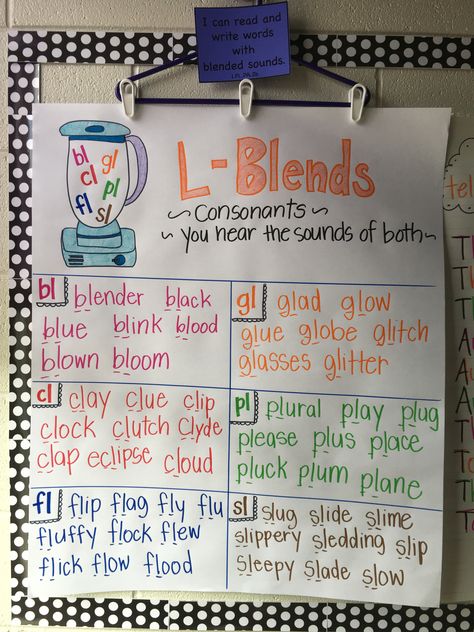 I can read and
write words
with
blended sounds.
bl gl
cl pl
fl sl
L-Blends
~ Consonants ~
~ You hear the sounds of both ~
bl blender black
blue blink blood
blown bloom
gl glad glow
glue globe glitch
glasses glitter
cl clay clue clip
clock clutch Clyde
clap eclipse cloud
pl plural play plug
please plus place
pluck plum plane
fl flip flag fly flu
fluffy flock flew
flick flow flood
sl slug slide slime
slippery sledding slip
sleepy slade slow